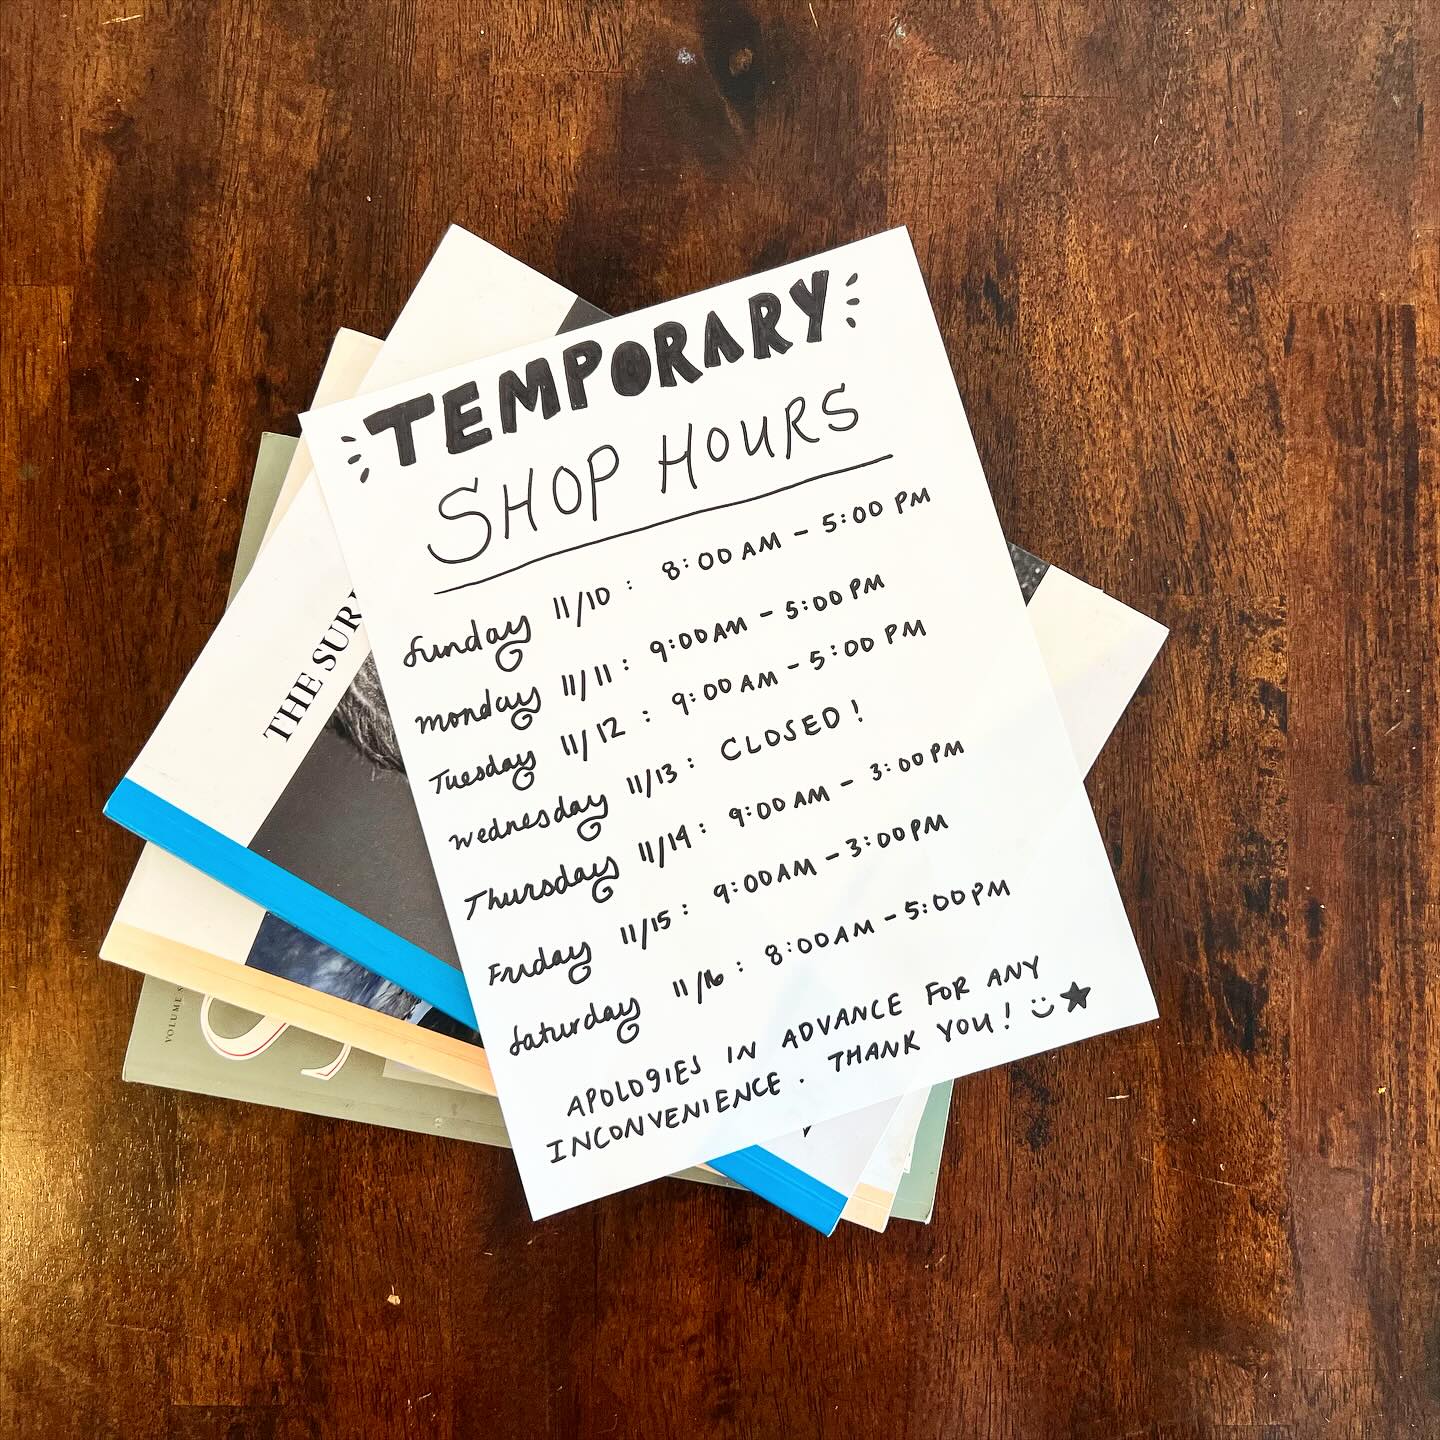 TEMPORARY
SHOP HOURS
Sunday 11/10 : 8:00 AM - 5:00 PM
Monday 11/11 : 9:00AM - 5:00 PM
Tuesday 11/12 : 9:00 AM - 5:00 PM
Wednesday 11/13 : CLOSED!
Thursday 11/14 : 9:00 AM - 3:00 PM
Friday 11/15 : 9:00AM - 3:00PM
Saturday 11/16 : 8:00AM - 5:00PM
APOLOGIES IN ADVANCE FOR ANY
INCONVENIENCE. THANK YOU! :) ★
THE SUR
VOLUME